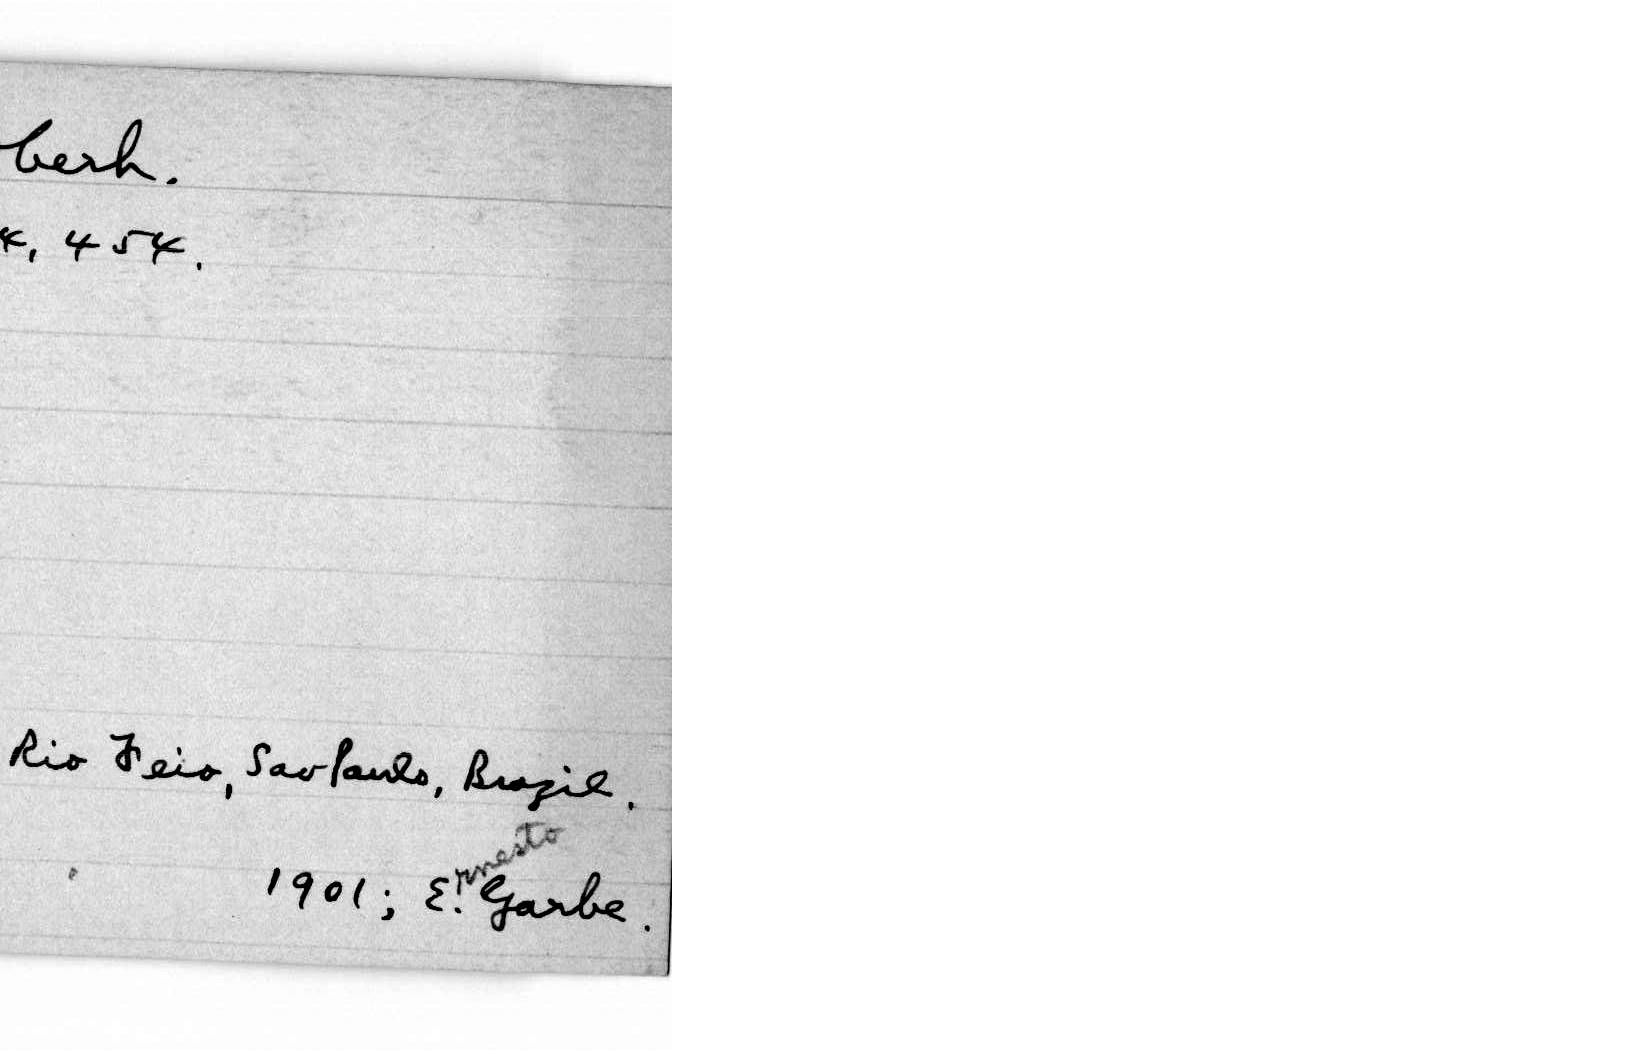 berh.
4, 454.
Rio Feio, Sao Paulo, Brazil.
rnesto
1901; E. Garbe.